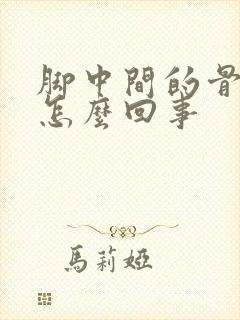 脚中間的骨
怎麼回事
馬莉婭